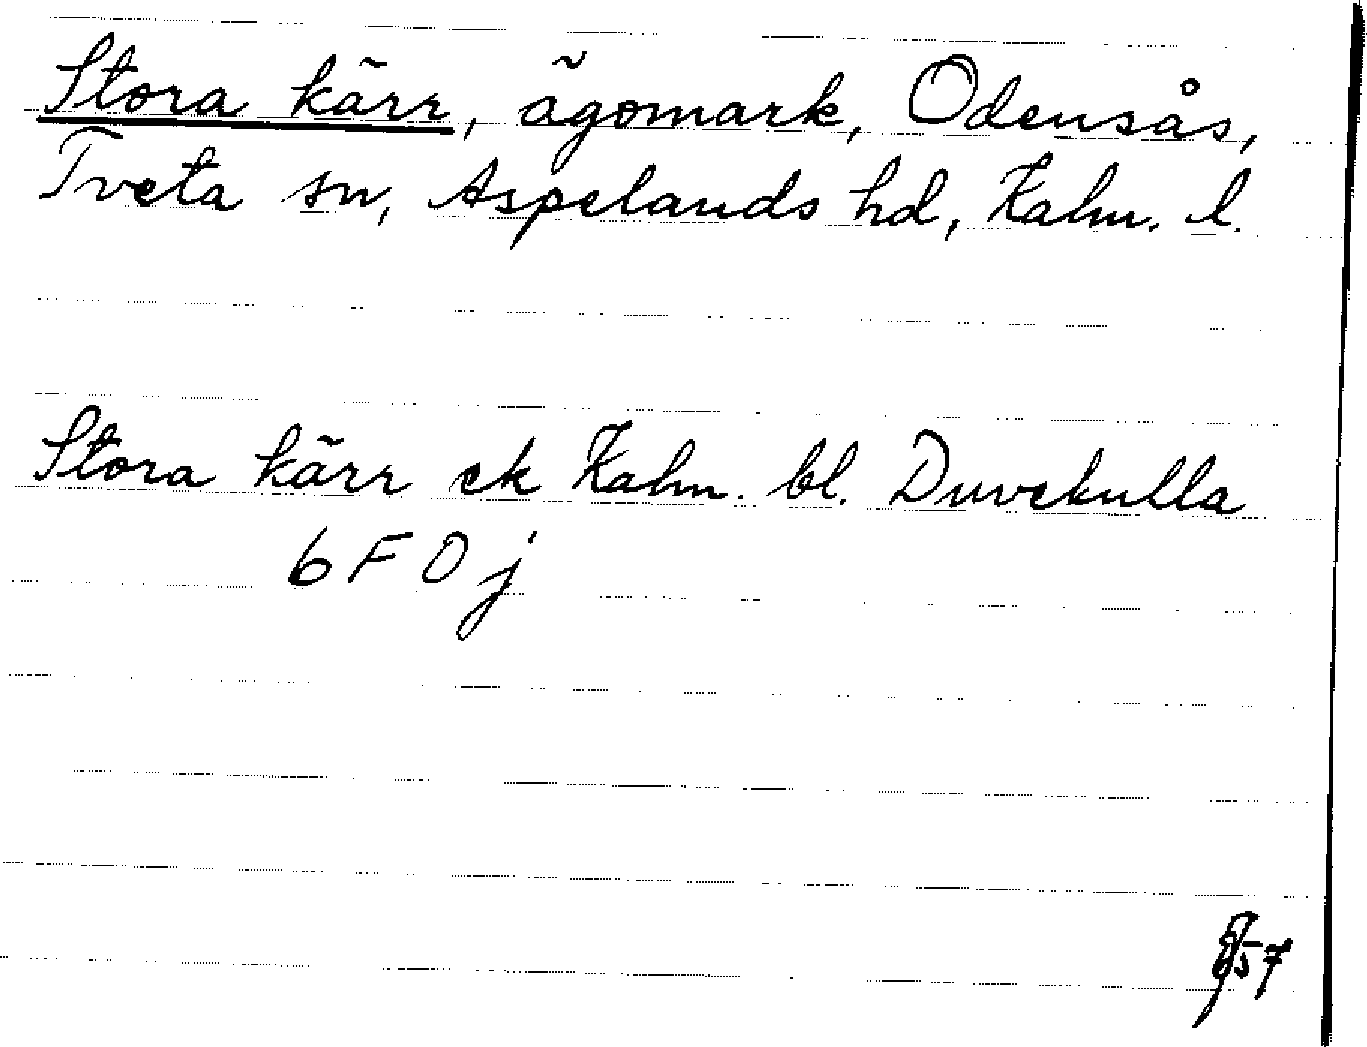 Stora kärr, ägomark, Odensås,
Tveta sn, Aspelands hd, Kalm. l.
Stora kärr ek Kalm. bl. Duvekulla
6 F 0 j
57